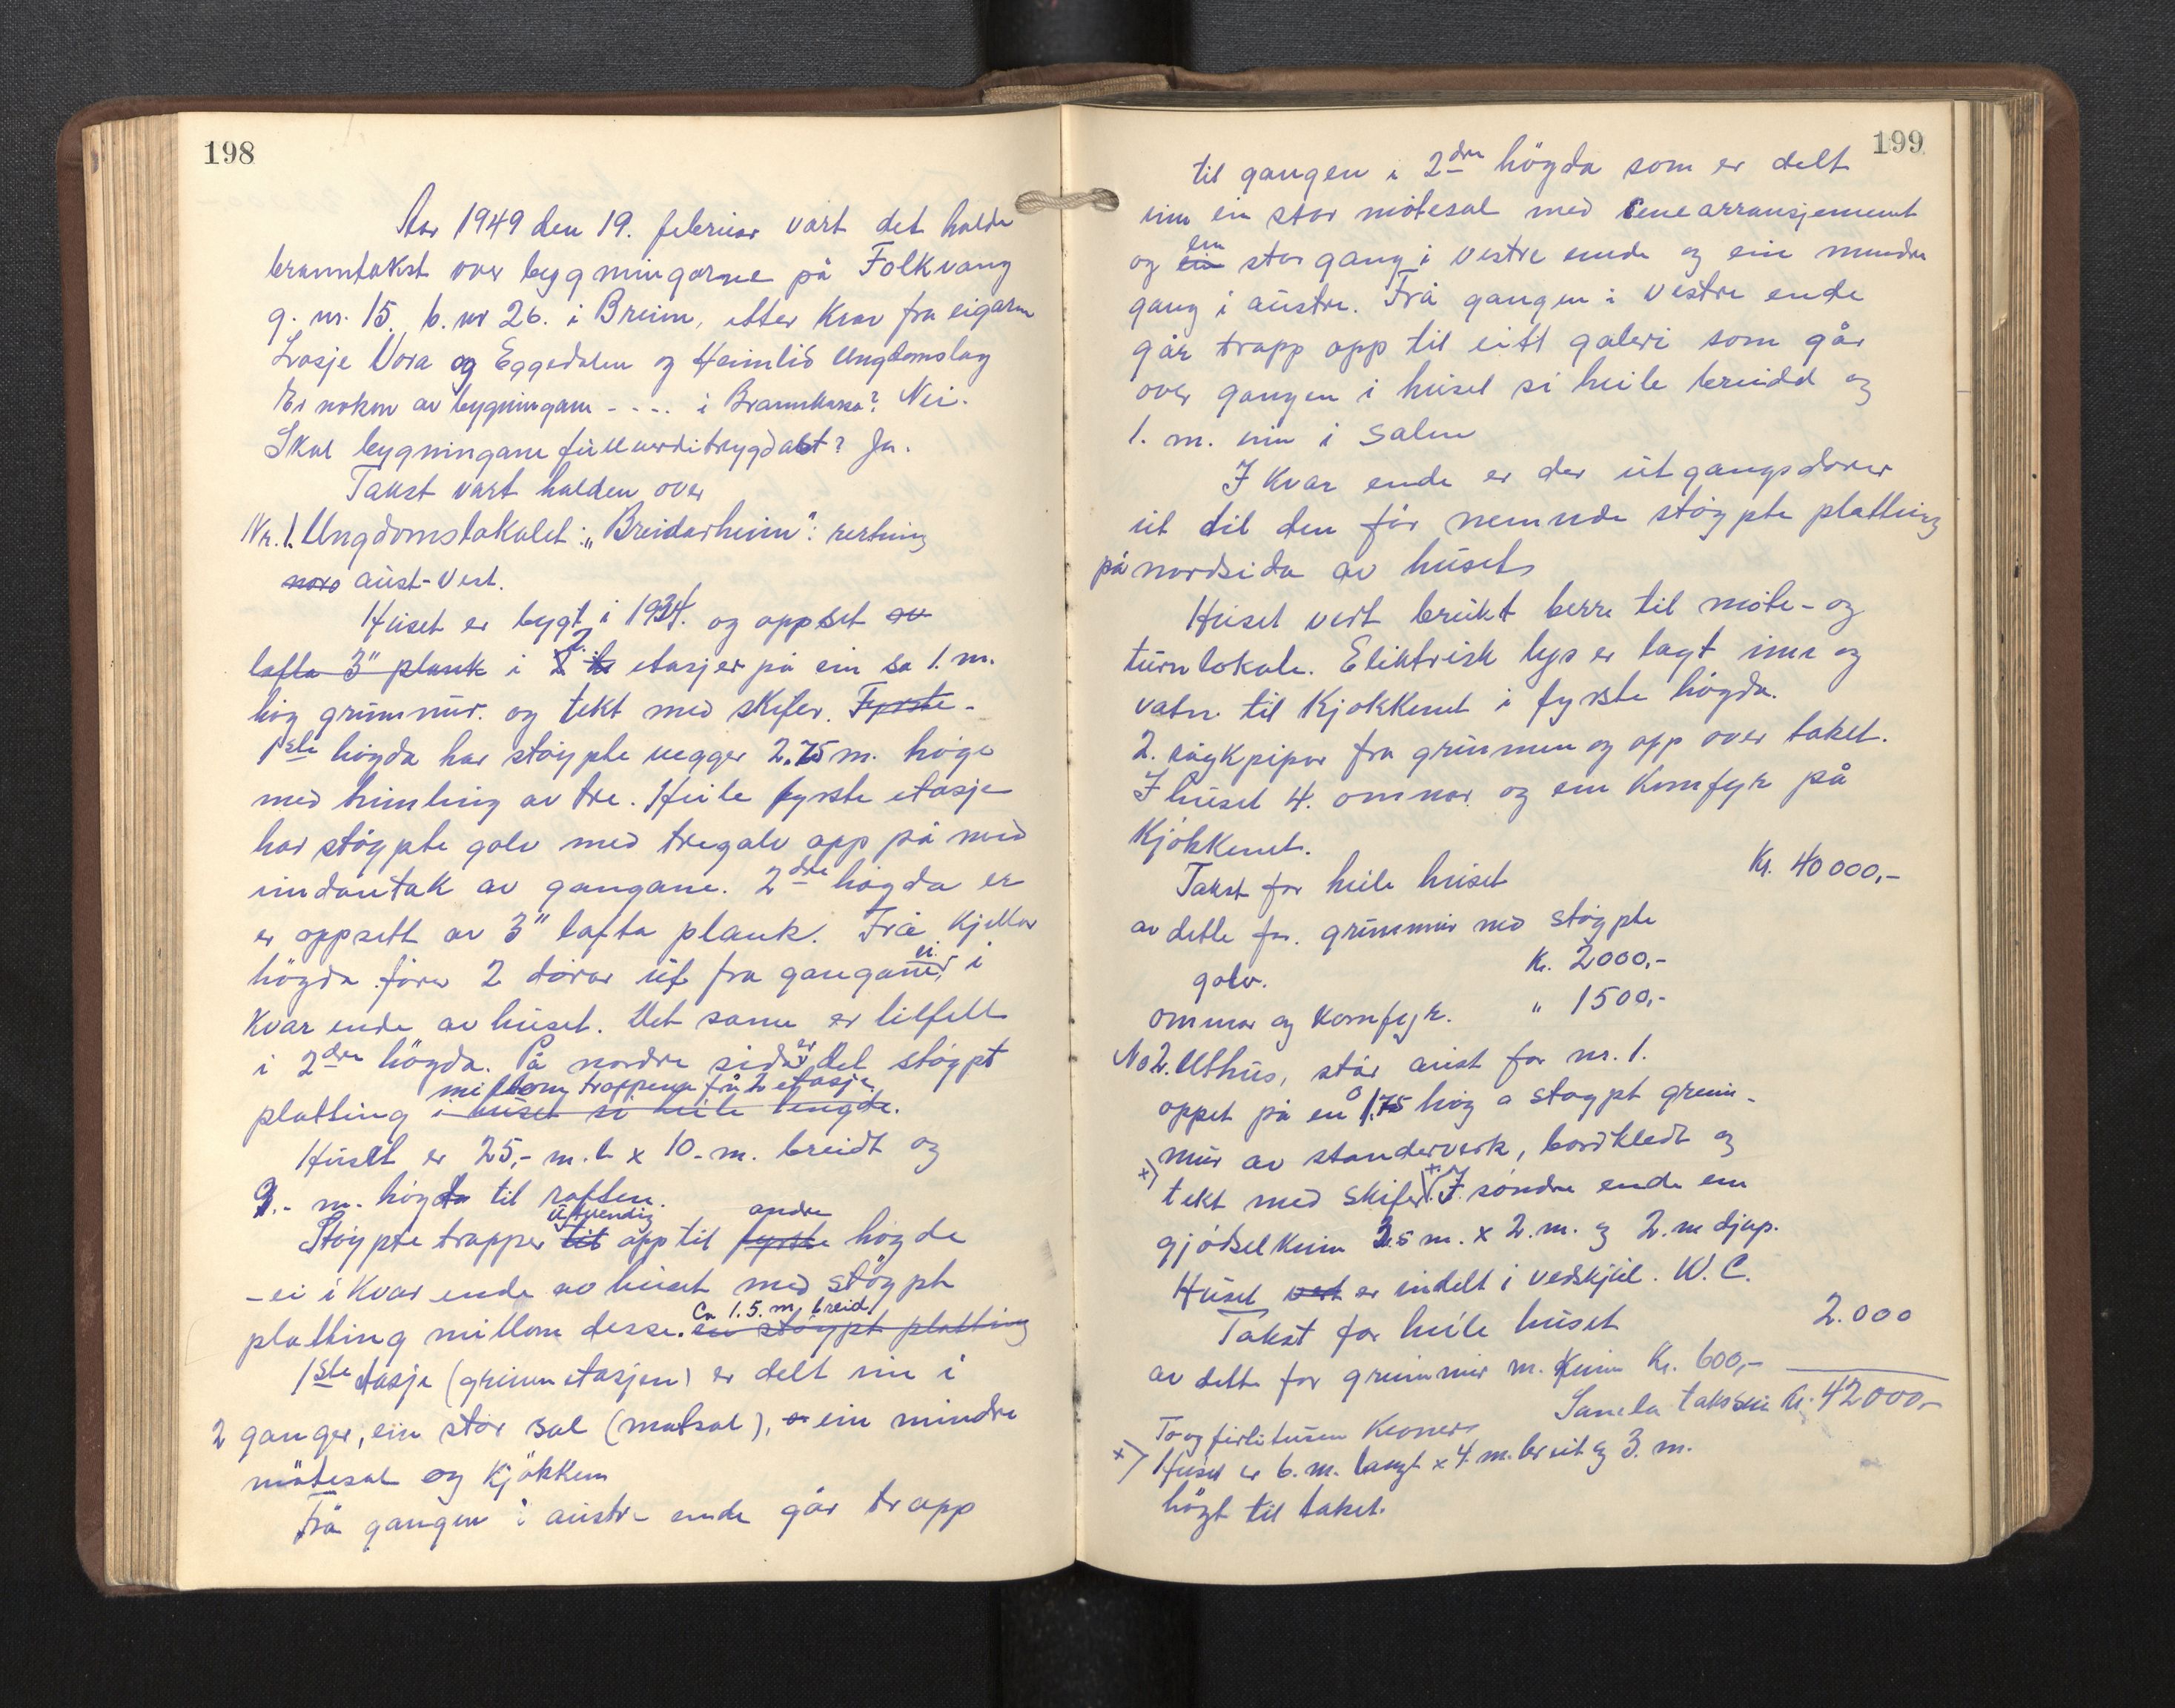 198
Aar 1949 den 19. februar vart det halde
branntakst over bygningarne på Folkvang
g. nr. 15. b. nr 26. i Breim, etter krav fra eigarne
Losje Vora og Eggedalen og Heimlid Ungdomslag
Er nokon av bygningane - . . . i Brannkassa? Nei.
Skal bygningane fullverditrygdast? Ja.
Takst vart halden over
Nr. 1. Ungdomslokalet: „Breidarheim": retning
nord aust-vest.
Huset er bygt i 1934. og oppset av
lafta 3" plank i 2. etasjer på ein ca 1. m.
høg grunmur. og tekt med skifer. Fyrste -
1ste høgda har støypte vegger 2.75 m. høge
med himling av tre. Heile fyrste etasje
har støypte golv med tregolv opp på med
undantak av gangane. 2dre høgda er
er oppsett av 3" lafta plank. Frå kjellar
högda fører 2 dører ut fra gangane, ei i
kvar ende av huset. Det same er tilfelle
i 2dre högda. På nordre sida er det støypt
millom trappene frå 2 etasje
platting i huset si heile lengde.
Huset er 25,- m. l x 10.- m. breidt og
9.- m. høgda til raften.
utvendig andre
Støypte trapper til opp til fyrste høgde
- ei i kvar ende av huset med støypt
Ca 1.5. m. breid
platting millom desse. en støypt platting
1ste etasje (grunnetasjen) er delt inn i
2 ganger, ein stor sal (matsal), ein mindre
møtesal og kjøkken
Frå gangen i austre ende går trapp
199
til gangen i 2dre högda som er delt
inn ein stor møtesal med senearransjement
og ein stor gang i vestre ende og ein mindre
gang i austre. Frå gangen i vestre ende
går trapp opp til eitt galeri som går
over gangen i huset si heile breidd og
1. m. inn i salen
I kvar ende er der utgangsdører
ut til den før nemnde støypte platting
på nordsida av huset
Huset vert brukt berre til møte- og
turnlokale. Elektrisk lys er lagt inn og
vatn til kjøkkenet i fyrste høgda.
2. røykpipor fra grunnen og opp over taket.
I huset 4. omnar og em komfyr på
kjøkkenet.
Takst for heile huset Kr. 40 000,-
av dette for. grunmur med støypte
golv. Kr. 2000,-
omnar og komfyr. " 1500,-
No 2. Uthus, står aust for nr. 1.
oppset på en 1.75 høg støypt grun-
mur av standerverk, bordkledt og
x) tekt med skifer. x. I søndre ende em
gjødselkum 2.5 m. x 2. m. og 2. m djup.
Huset vert er indelt i vedskjul. W. C.
Takst for heile huset 2.000
av dette for grunmur m. kum Kr. 600,-
Samla takssum Kr. 42000,-
To og førti tusen kroner
x) Huset er 6. m. langt x 4. m. breit og 3. m.
høgt til taket.